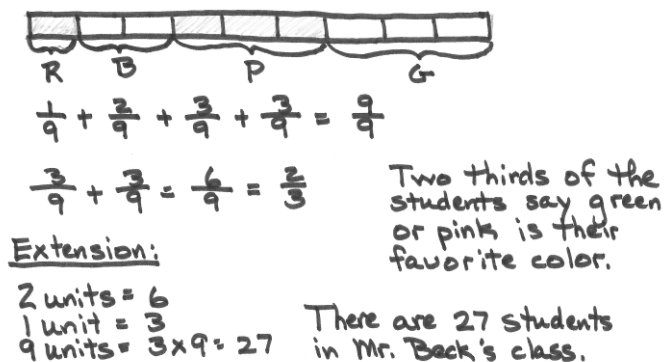 R B P G
1/9 + 2/9 + 3/9 + 3/9 = 9/9
3/9 + 3/9 = 6/9 = 2/3
Two thirds of the
students say green
or pink is their
favorite color.
Extension:
2 units = 6
1 unit = 3
9 units = 3 x 9 = 27
There are 27 students
in Mr. Beck's class.